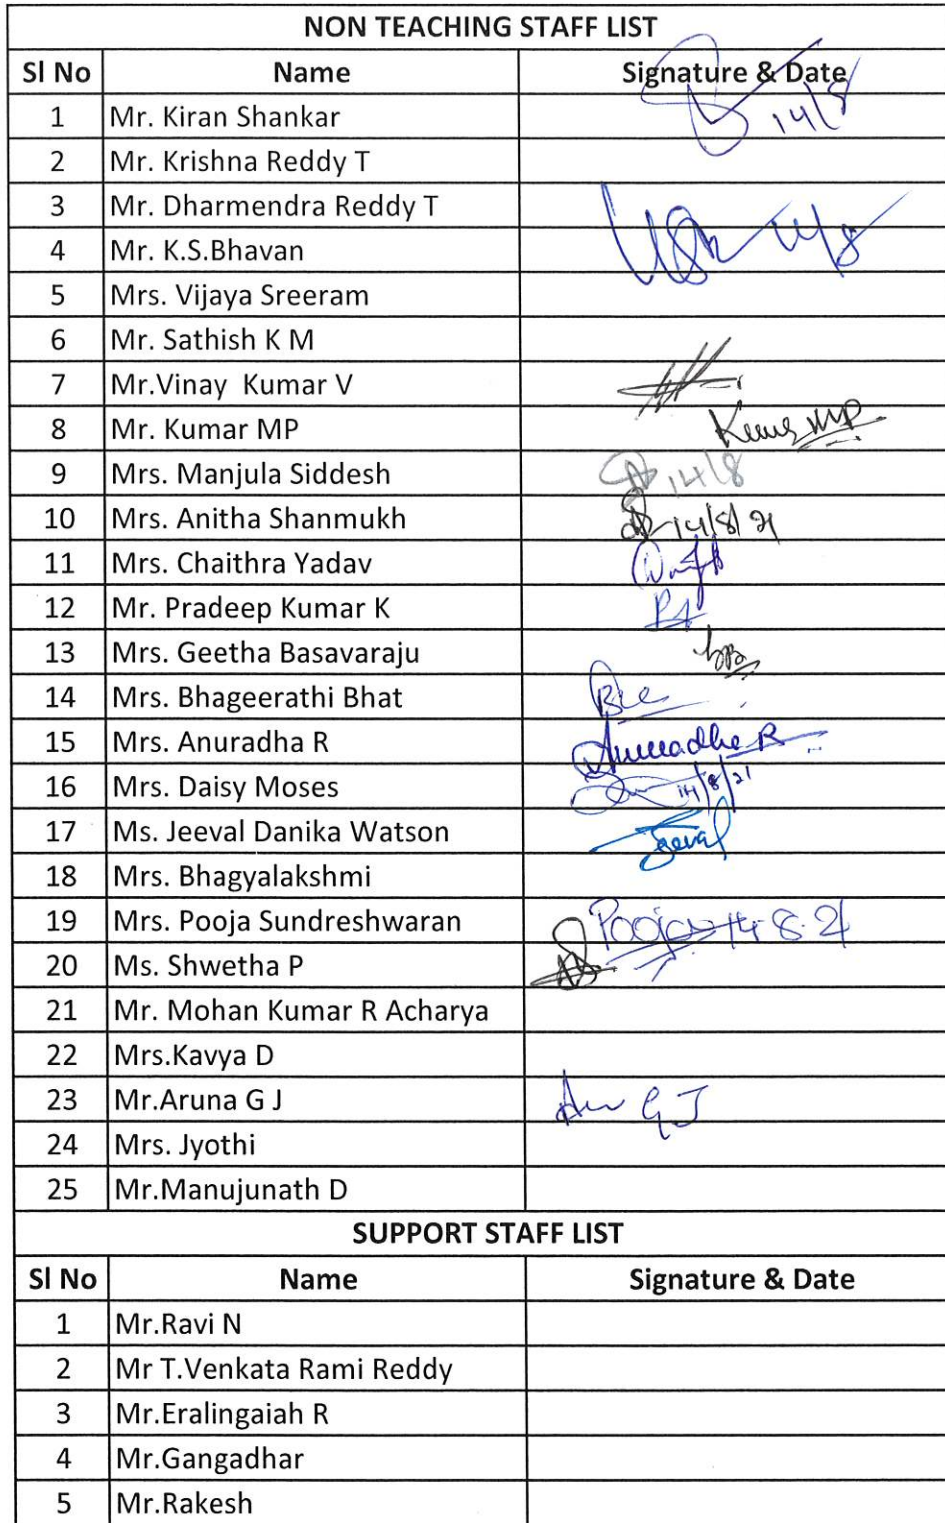 NON TEACHING STAFF LIST
Sl No Name Signature & Date
1 Mr. Kiran Shankar 14/8
2 Mr. Krishna Reddy T
3 Mr. Dharmendra Reddy T
4 Mr. K.S.Bhavan
5 Mrs. Vijaya Sreeram
6 Mr. Sathish K M
7 Mr.Vinay Kumar V
8 Mr. Kumar MP Kumar MP
9 Mrs. Manjula Siddesh 14/8
10 Mrs. Anitha Shanmukh 14/8/21
11 Mrs. Chaithra Yadav
12 Mr. Pradeep Kumar K
13 Mrs. Geetha Basavaraju
14 Mrs. Bhageerathi Bhat
15 Mrs. Anuradha R Anuradha R
16 Mrs. Daisy Moses 14/8/21
17 Ms. Jeeval Danika Watson Jeeval
18 Mrs. Bhagyalakshmi
19 Mrs. Pooja Sundreshwaran Pooja 14-8-21
20 Ms. Shwetha P
21 Mr. Mohan Kumar R Acharya
22 Mrs.Kavya D
23 Mr.Aruna G J G J
24 Mrs. Jyothi
25 Mr.Manujunath D
SUPPORT STAFF LIST
Sl No Name Signature & Date
1 Mr.Ravi N
2 Mr T.Venkata Rami Reddy
3 Mr.Eralingaiah R
4 Mr.Gangadhar
5 Mr.Rakesh